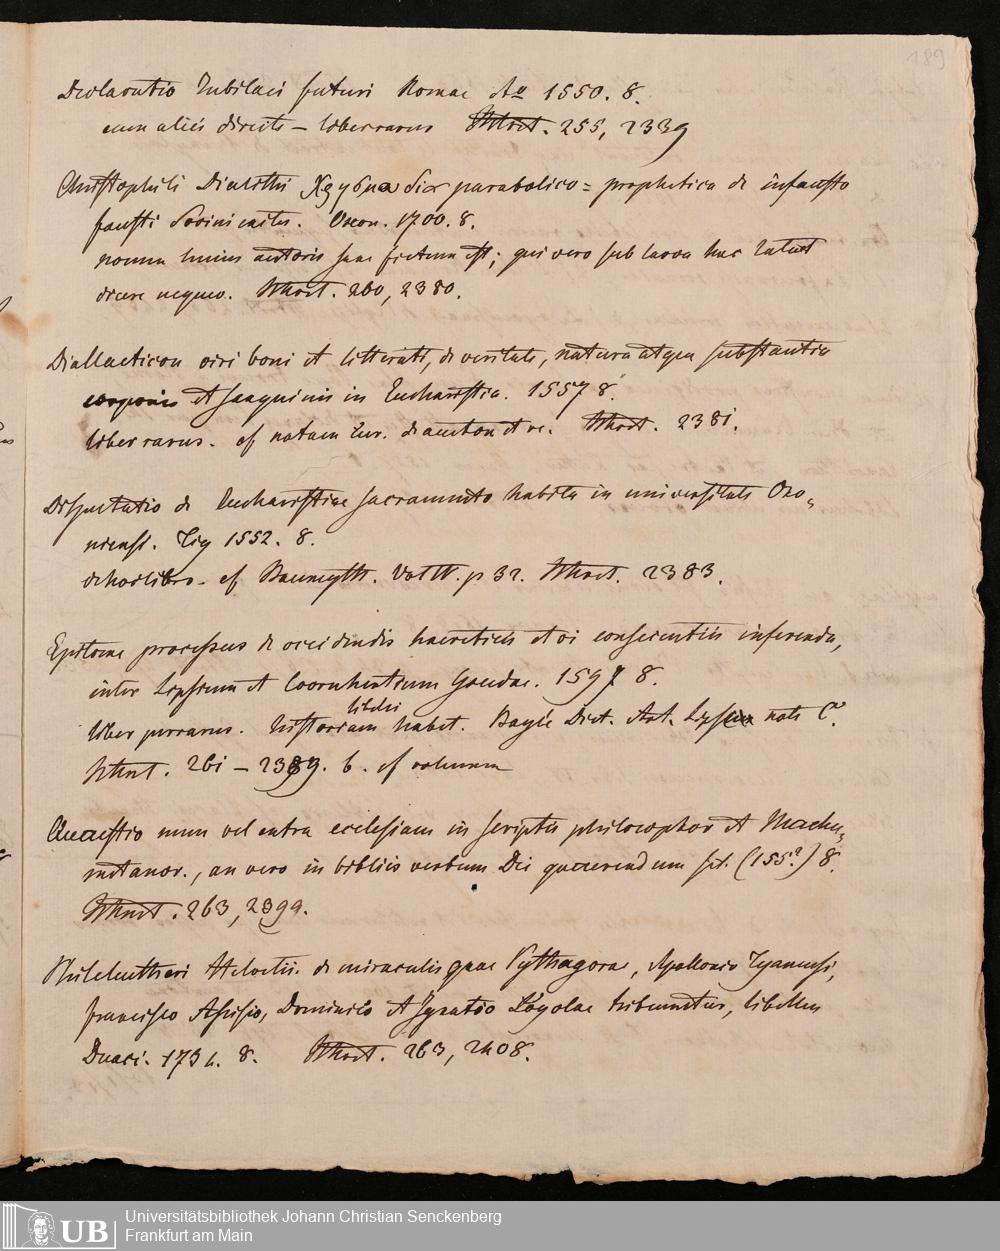 189
Declaratio Jubilaei futuri Romae Ao 1550. 8.
cum aliis directe – liber rarus Whort. 255, 2339
Christophili Dialithi parabolico = prophetica de infausto
fausti Socini exitu. Oxon. 1700. 8.
nomen huius autoris sane fictum est; qui vero sub larva hac latuit
dicere nequeo. Whort. 260, 2380.
Diallacticon viri boni et litterati, de veritate, natura atque substantia
corporis et sanguinis in Eucharistia. 1557 8.
liber rarus. cf notam de autore Whort. 2381.
Disputatio de Eucharistiae sacramento habita in universitate Oxo„
niensi. Tig 1552. 8.
de hoc libro. cf Baumgth. Vol IV. p 32. Whort. 2383.
Epitome processus de occidendis haereticis et vi conscientiis inferenda,
inter Lipsium et Coornhertium Goudae. 1597 8.
libelli
liber perrarus. historiam habet. Bayle Dict. Art. Lipsius not. C.
Whort. 261 – 2389. b. cf volumen
Quaestio num vel extra ecclesiam in scriptis philosophor et Machu„
metanor., an vero in biblico verbum Dei quaerendum sit. (155?) 8.
Whort. 263, 2399.
Phileleutheri Helvetii. de miraculis quae Pythagorae, Apollonio Tyanensi,
francisco Asisio, Dominico et Ignatio Loyolae tribuuntur, libellus
Duaci. 1734. 8. Whort. 263, 2408.
UB Universitätsbibliothek Johann Christian Senckenberg
Frankfurt am Main